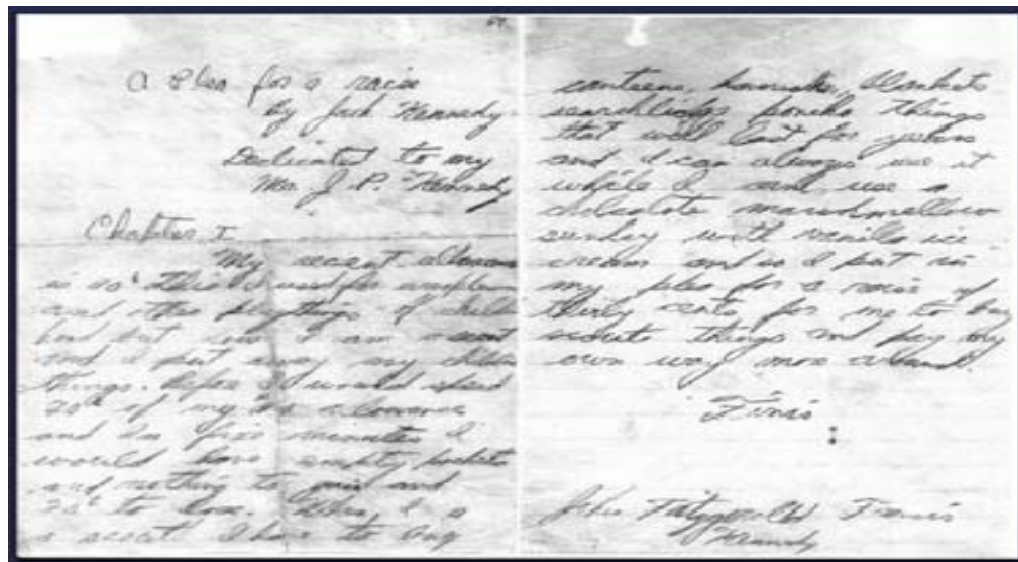 A Plea for a raise
By Jack Kennedy
Dedicated to my
Mr. J. P. Kennedy
Chapter I
My recent allowance
is 40¢. This I used for
and other playthings of
but now I am a scout
and I put away my
things. Before I would spend
20¢ of my 40¢ allowance
and in five minutes I
would have empty pockets
and nothing to gain and
20¢ to lose. When I a
a scout I have to buy
canteens, haversacks, blankets
searchlidgs poncho things
that will last for years
and I can always use it
while I cant use a
chocolate marshmellow
sunday with vanilla ice
cream and so I put in
my plea for a raise of
thirty cents for me to buy
scouts things and pay my
own way more around.
Finis
John Fitzgerald Francis
Kennedy